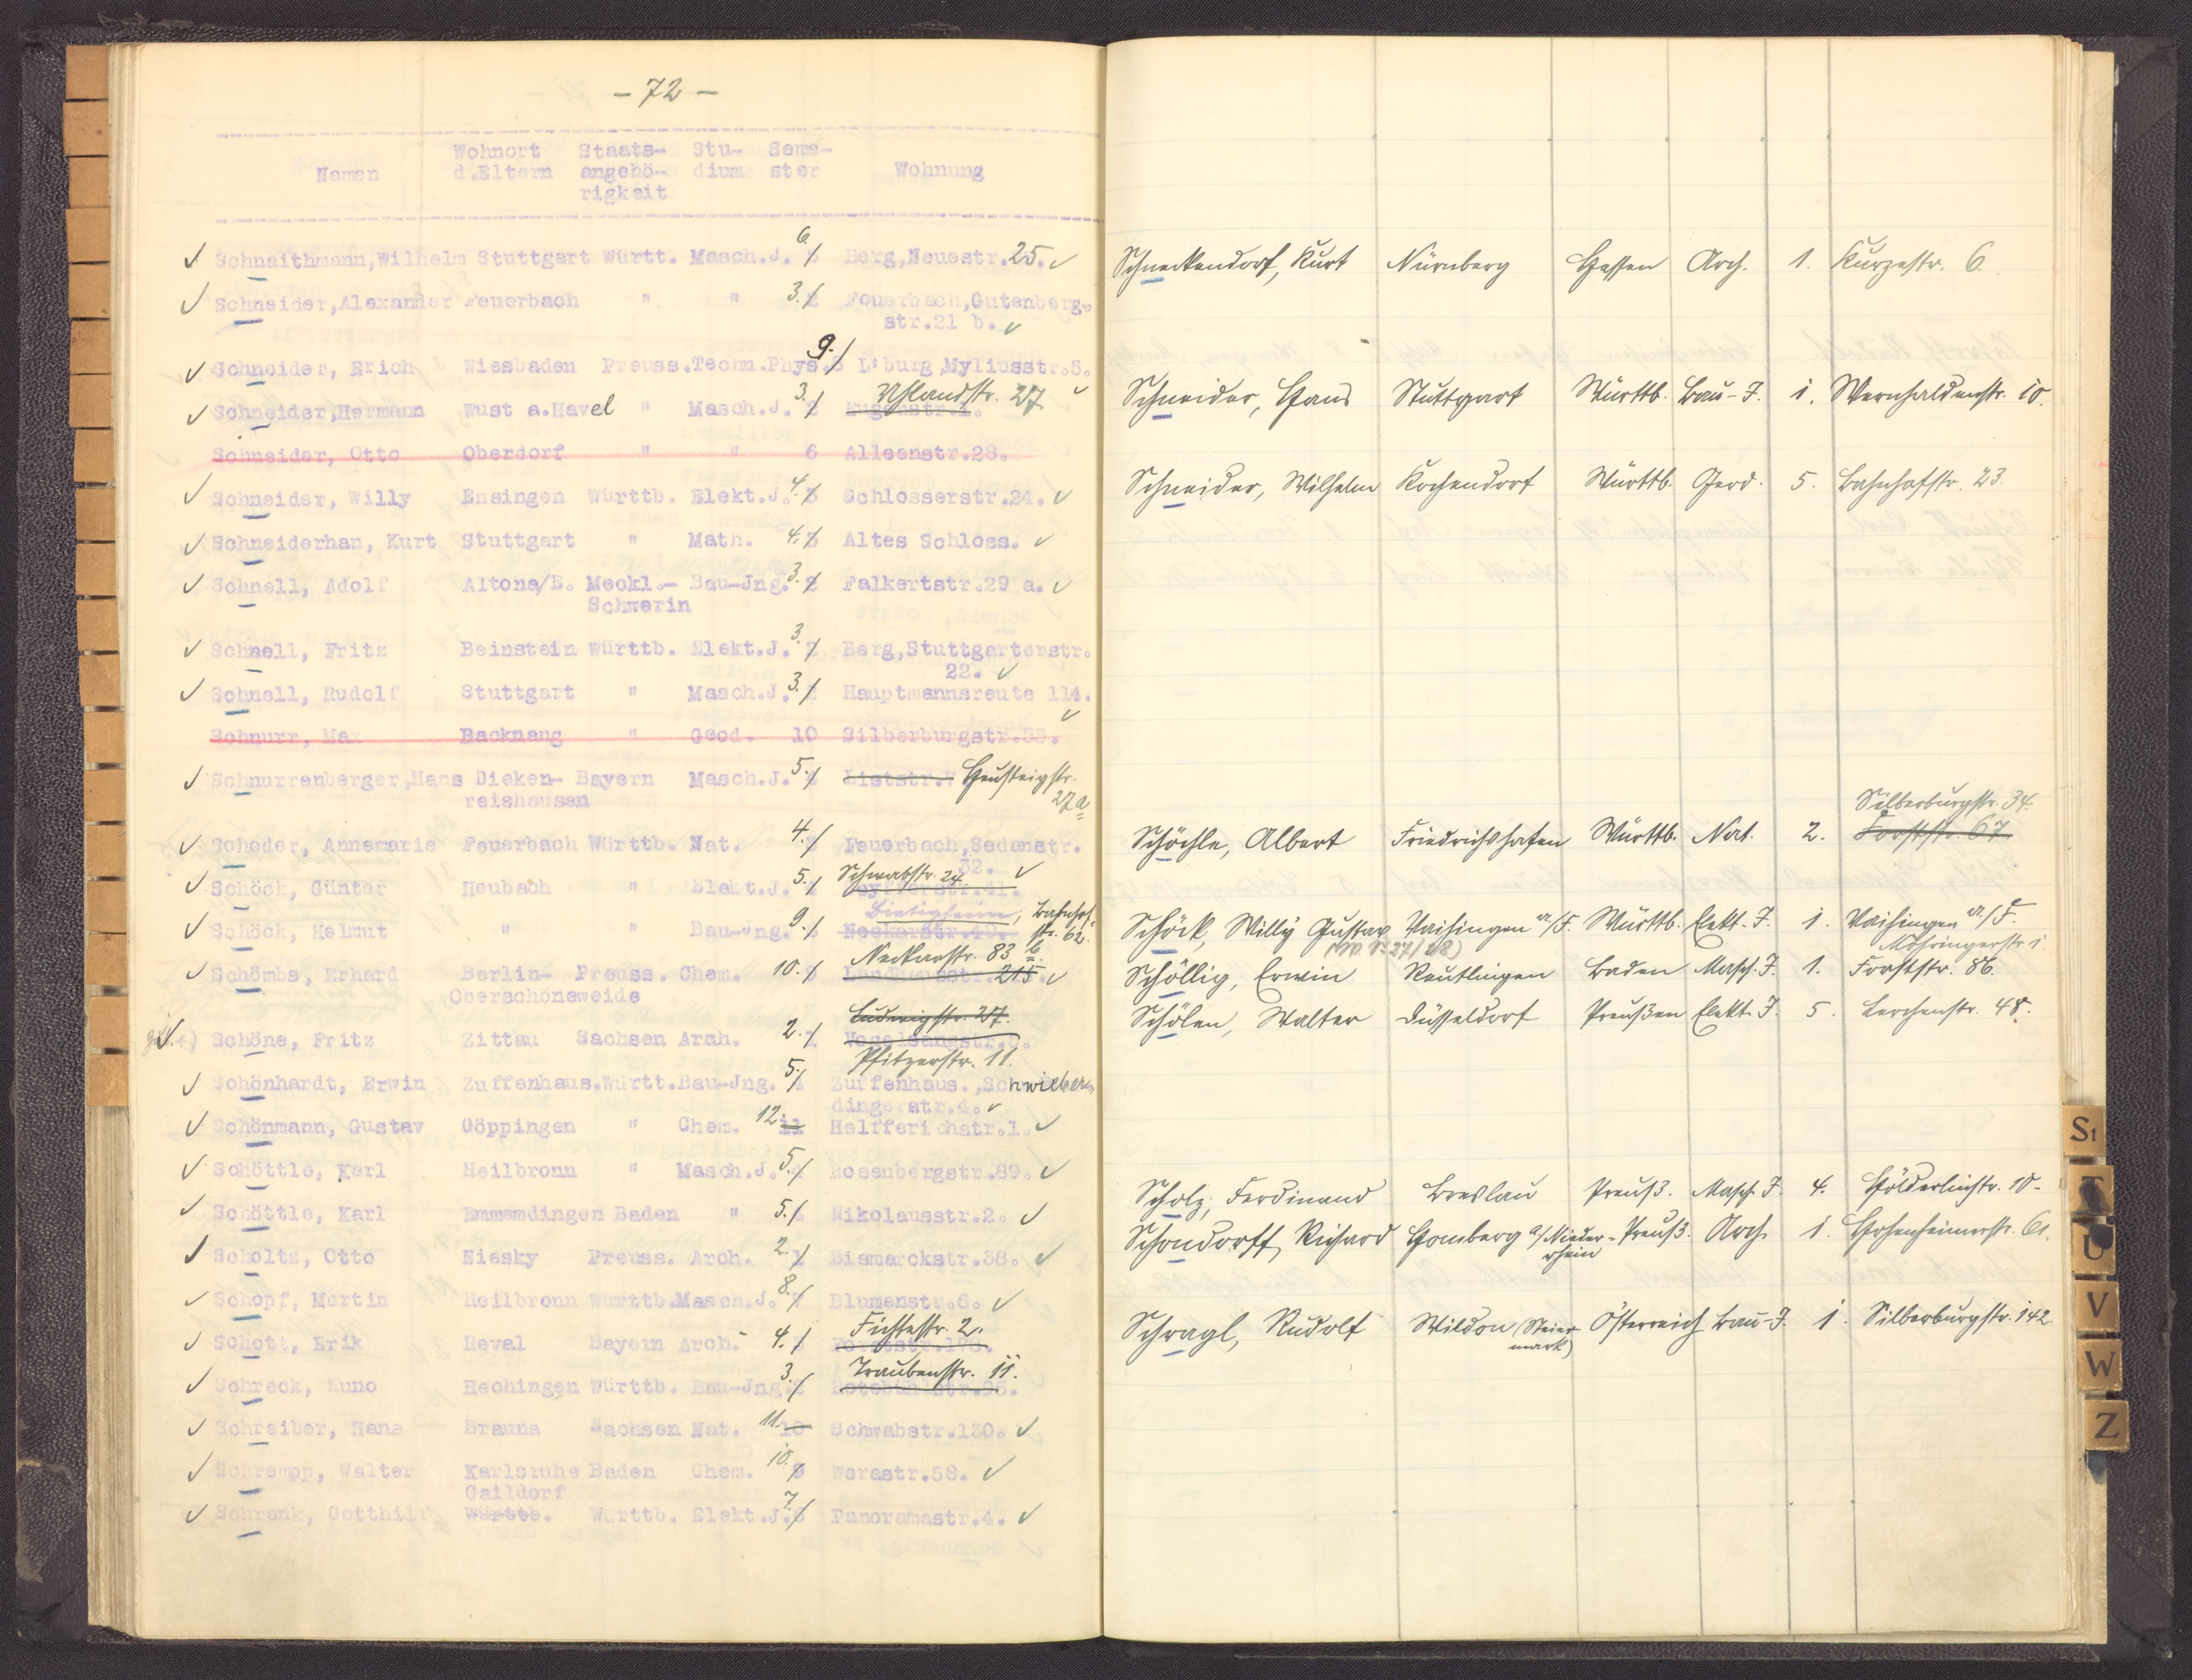 - 72 -
Namen Wohnort d.Eltern Staats-angehö-rigkeit Stu-dium Seme-ster Wohnung
Schneithmann, Wilhelm Stuttgart Württ. Masch.J. 6. Berg, Neuestr. 25.
Schneider, Alexander Feuerbach " " 3. Feuerbach, Gutenberg-
str.21 b.
Schneider, Erich Wiesbaden Preuss. Techn.Phys. 9. L'burg, Myliusstr.5.
Uhlandstr. 27
Schneider, Hermann Wust a.Havel " Masch.J. 3. Eugenstr.
Schneider, Otto Oberdorf " " 6 Alleenstr.28.
Schneider, Willy Ensingen Württb. Elekt.J. 4. Schlosserstr.24.
Schneiderhan, Kurt Stuttgart " Math. 4. Altes Schloss.
Schnell, Adolf Altona/E. Meckl.- Bau-Jng. 3. Falkertstr.29 a.
Schwerin
Schnell, Fritz Beinstein Württb. Elekt.J. 3. Berg, Stuttgarterstr.
22.
Schnell, Rudolf Stuttgart " Masch.J. 3. Hauptmannsreute 114.
Schnurr, Max Backnang " Geod. 10 Silberburgstr.53.
Schnurrenberger, Hans Dieken- Bayern Masch.J. 5. Liststr. Heusteigstr.
reishausen 27a
Schoder, Annemarie Feuerbach Württb. Nat. 4. Feuerbach, Sedanstr.
32.
Schwabstr. 24
Schöck, Günter Heubach " Elekt.J. 5.
Bietigheim, Bahnhof-
str. 62.
Schöck, Helmut " " Bau-Jng. 9. Neckarstr.49.
Neckarstr. 83 b.
Schömbs, Erhard Berlin- Preuss. Chem. 10. Landhausstr. 215.
Oberschöneweide
Ludwigstr. 27.
Schöne, Fritz Zittau Sachsen Arch. 2. Vogelsangstr.
Pfitzerstr. 11.
Schönhardt, Erwin Zuffenhaus. Württ. Bau-Jng. 5. Zuffenhaus., Schwieber-
dingerstr.4.
Schönmann, Gustav Göppingen " Chem. 12. 11 Helfferichstr.1.
Schöttle, Karl Heilbronn " Masch.J. 5. Rosenbergstr.89.
Schöttle, Karl Emmendingen Baden " 5. Nikolausstr.2.
Scholtz, Otto Niesky Preuss. Arch. 2. Bismarckstr.38.
Schopf, Martin Heilbronn Württb. Masch.J. 8. Blumenstr.6.
Fichtestr. 2.
Schott, Erik Reval Bayern Arch. 4. Forststr.
Traubenstr. 11.
Schreck, Kuno Hechingen Württb. Bau-Jng. 3. Rotebühlstr.
Schreiber, Hans Brauna Sachsen Nat. 11. 10 Schwabstr.130.
Schrempp, Walter Karlsruhe Baden Chem. 10. Werastr.58.
Gaildorf
Schrenk, Gotthilf Württb. Württb. Elekt.J. 7. Panoramastr.4.
Schneckendorf, Kurt Nürnberg Hessen Arch. 1. Kurzestr. 6.
Schneider, Hans Stuttgart Württb. Bau-J. 1. Wernhaldenstr. 10.
Schneider, Wilhelm Kochendorf Württb. Geod. 5. Bahnhofstr. 23.
Silberburgstr. 34.
Schöchle, Albert Friedrichshafen Württb. Nat. 2. Forststr. 67
Schöck, Willy Gustav Vaihingen a/F. Württb. Elekt. J. 1. Vaihingen a/F.
Möhringerstr 1.
Schöllig, Erwin Reutlingen Baden Masch. J. 1. Forststr. 86.
Schölen, Walter Düsseldorf Preußen Elekt. J. 5. Lerchenstr. 48.
Scholz, Ferdinand Breslau Preuß. Masch. J. 4. Hölderlinstr. 10.
Schondorff, Richard Homberg a/Nieder- Preuß. Arch. 1. Hohenheimerstr. 61.
rhein
Schragl, Rudolf Wildon (Steier- Österreich Bau-J. 1. Silberburgstr. 142.
mark)
St
T
U
V
W
Z